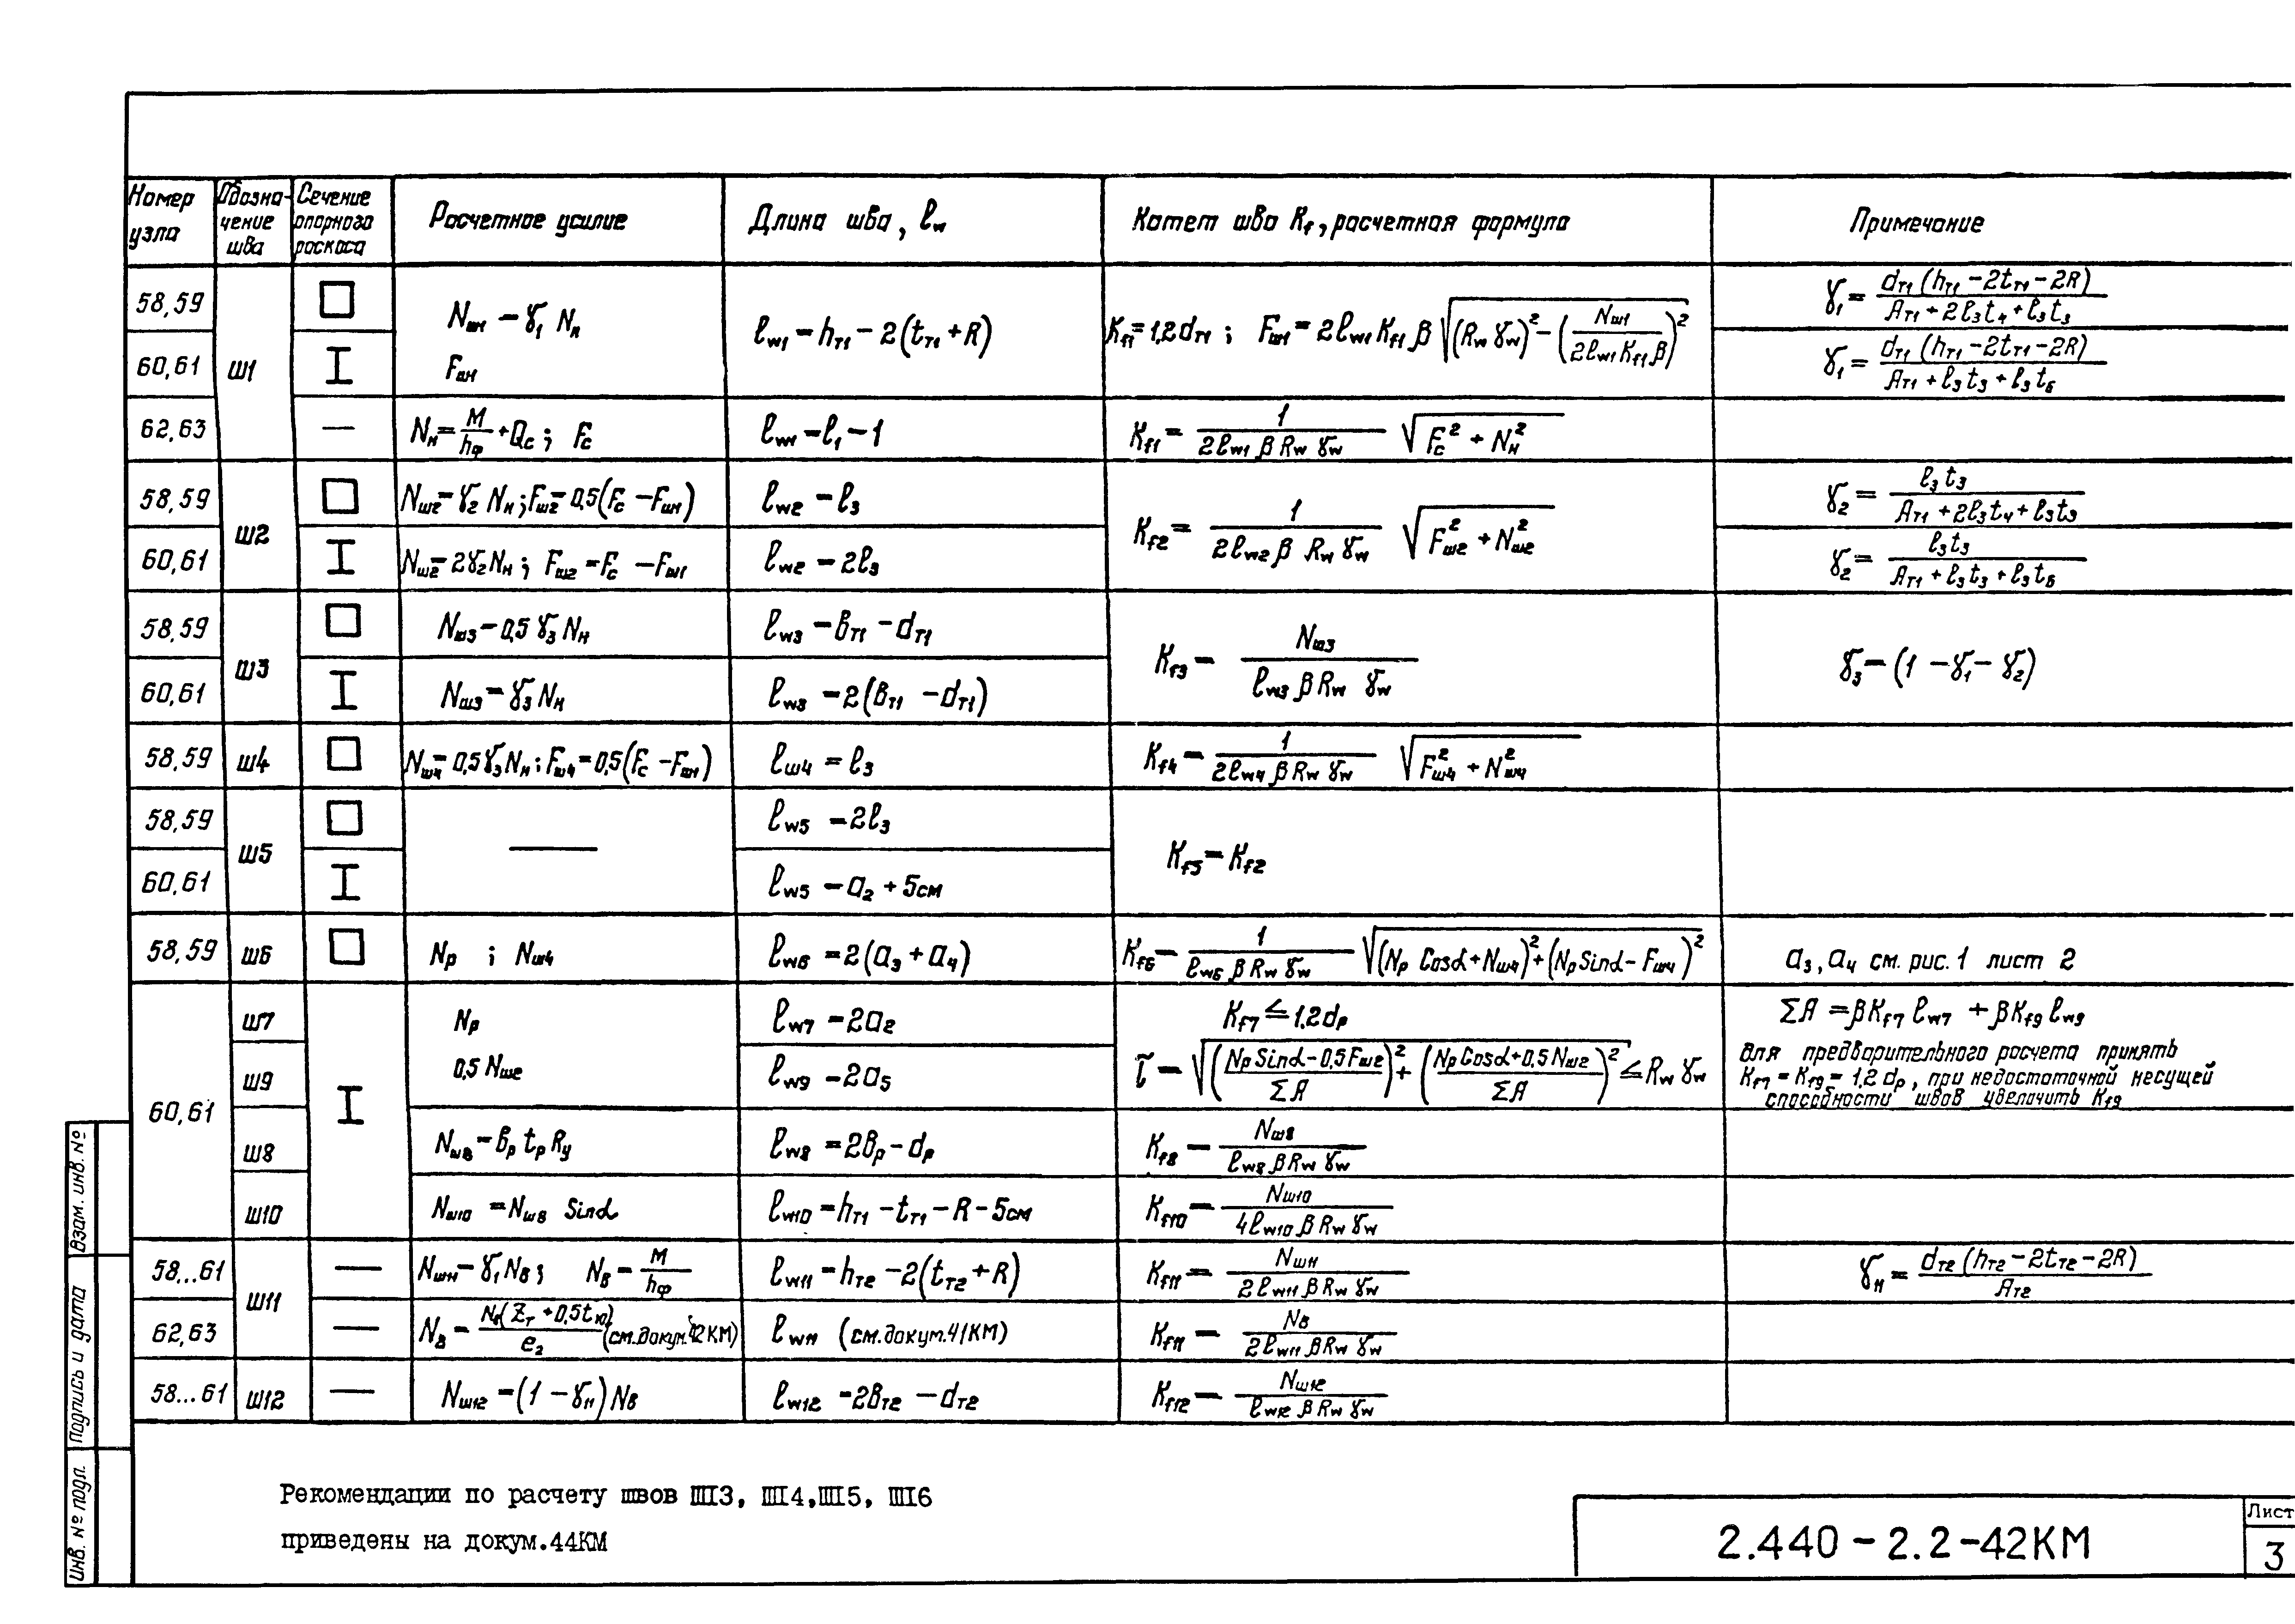 Номер узла
Обозначение шва
Сечение опорного раскоса
Расчетное усилие
Длина шва, ℓw
Катет шва Kf, расчетная формула
Примечание
58,59
60,61
ш1
Nш1 = γ1 Nн
Fш1
ℓw1 = hт1 - 2(tт1 + R)
Kf1 = 1,2dт1 ; Fш1 = 2ℓw1 Kf1 β √((Rw γw)² - (Nш1 / (2ℓw1 Kf1 β))²)
γ1 = dт1 (hт1 - 2tт1 - 2R) / (Aт1 + 2ℓ3t4 + ℓ3t3)
γ1 = dт1 (hт1 - 2tт1 - 2R) / (Aт1 + ℓ3t3 + ℓ3t6)
62,63
—
Nн = M/hф + Qc ; Fc
ℓw1 = ℓ1 - 1
Kf1 = 1 / (2ℓw1 β Rw γw) √(Fc² + Nн²)
58,59
ш2
Nш2 = γ2 Nн ; Fш2 = 0,5(Fc - Fш1)
ℓw2 = ℓ3
Kf2 = 1 / (2ℓw2 β Rw γw) √(Fш2² + Nш2²)
γ2 = ℓ3t3 / (Aт1 + 2ℓ3t4 + ℓ3t3)
60,61
Nш2 = 2γ2Nн ; Fш2 = Fc - Fш1
ℓw2 = 2ℓ3
γ2 = ℓ3t3 / (Aт1 + ℓ3t3 + ℓ3t6)
58,59
ш3
Nш3 = 0,5 γ3 Nн
ℓw3 = bт1 - dт1
Kf3 = Nш3 / (ℓw3 β Rw γw)
γ3 = (1 - γ1 - γ2)
60,61
Nш3 = γ3 Nн
ℓw3 = 2(bт1 - dт1)
58,59
ш4
Nш4 = 0,5γ3Nн ; Fш4 = 0,5(Fc - Fш1)
ℓш4 = ℓ3
Kf4 = 1 / (2ℓw4 β Rw γw) √(Fш4² + Nш4²)
58,59
ш5
—
ℓw5 = 2ℓ3
Kf5 = Kf2
60,61
ℓw5 = a2 + 5см
58,59
ш6
Np ; Nш4
ℓw6 = 2(a3 + a4)
Kf6 = 1 / (ℓw6 β Rw γw) √((Np Cosα + Nш4)² + (Np Sinα - Fш4)²)
a3, a4 см. рис. 1 лист 2
60,61
ш7
Np
ℓw7 = 2a2
Kf7 ≤ 1,2dp
ΣA = βKf7 ℓw7 + βKf9 ℓw9
ш9
0,5 Nш2
ℓw9 = 2a5
τ = √(((Np Sinα - 0,5Fш2) / ΣA)² + ((Np Cosα + 0,5Nш2) / ΣA)²) ≤ Rw γw
для предварительного расчета принять
Kf7 = Kf9 = 1,2 dp, при недостаточной несущей
способности швов увеличить Kf9
ш8
Nш8 = bp tp Ry
ℓw8 = 2bp - dp
Kf8 = Nш8 / (ℓw8 β Rw γw)
ш10
Nш10 = Nш8 Sinα
ℓw10 = hт1 - tт1 - R - 5см
Kf10 = Nш10 / (4ℓw10 β Rw γw)
58...61
ш11
—
Nш11 = γ1 Nв ; Nв = M/hф
ℓw11 = hт2 - 2(tт2 + R)
Kf11 = Nш11 / (2ℓw11 β Rw γw)
γ11 = dт2 (hт2 - 2tт2 - 2R) / Aт2
62,63
—
Nв = (Zт + 0,5tю) / e2 (см. докум. 42КМ)
ℓw11 (см. докум. 41КМ)
Kf11 = Nв / (2ℓw11 β Rw γw)
58...61
ш12
—
Nш12 = (1 - γ11) Nв
ℓw12 = 2bт2 - dт2
Kf12 = Nш12 / (ℓw12 β Rw γw)
Рекомендации по расчету швов Ш3, Ш4,Ш5, Ш6
приведены на докум.44КМ
2.440 - 2.2 - 42КМ
Лист
3
Взам. инв. №
Подпись и дата
Инв. № подл.